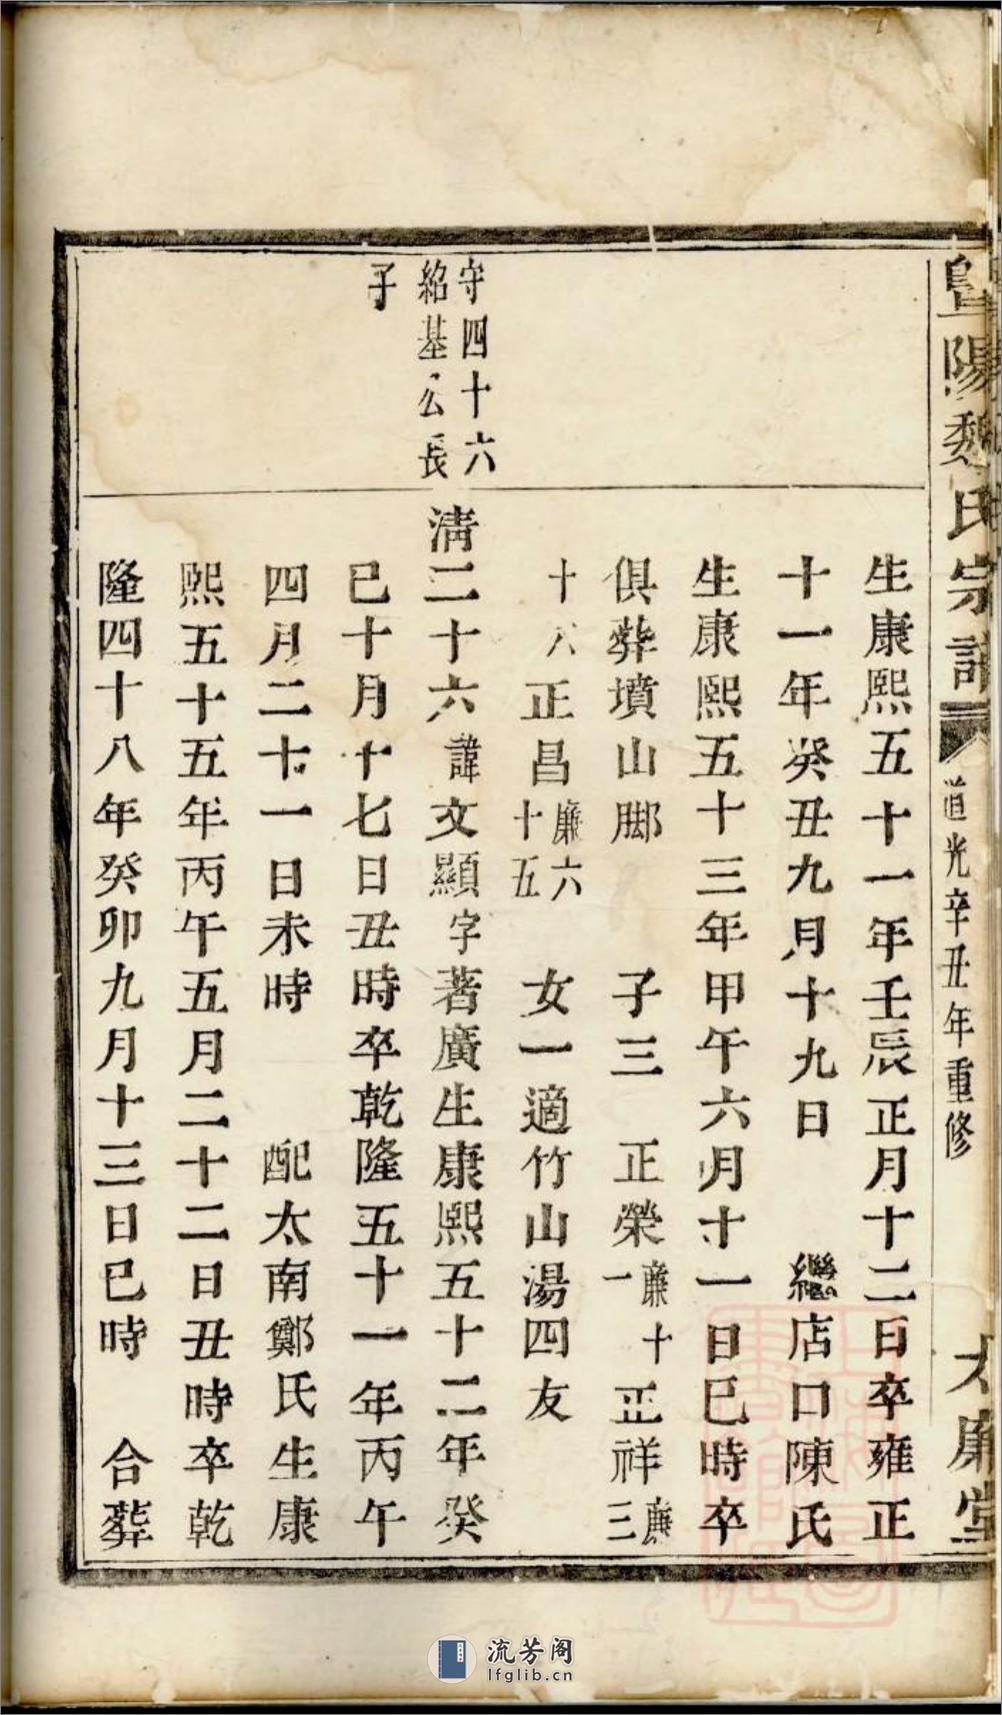 暨陽魏氏宗譜
道光辛丑年重修
大廉堂
生康熙五十一年壬辰正月十二日卒雍正
十一年癸丑九月十九日　繼店口陳氏
生康熙五十三年甲午六月十一日巳時卒
俱葬墳山脚　子三　正榮廉十一　正祥廉三
十八正昌廉六十五　女一適竹山湯四友
守四十六
紹基公長
子
清二十六諱文顯字著廣生康熙五十二年癸
巳十月十七日丑時卒乾隆五十一年丙午
四月二十一日未時　配太南鄭氏生康
熙五十五年丙午五月二十二日丑時卒乾
隆四十八年癸卯九月十三日巳時　合葬
流芳阁
lfglib.cn